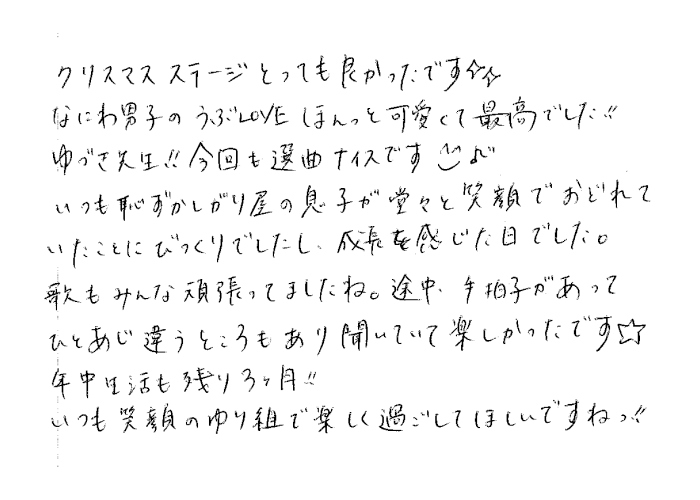 クリスマスステージとっても良かったです☆☆
なにわ男子のうぶLOVEほんっと可愛くて最高でした!!
ゆづき先生!!今回も選曲ナイスです
いつも恥ずかしがり屋の息子が堂々と笑顔でおどれて
いたことにびっくりでしたし、成長を感じた日でした。
歌もみんな頑張ってましたね。途中、手拍子があって
ひとあじ違うところもあり聞いていて楽しかったです☆
年中生活も残り3ヶ月!!
いつも笑顔のゆり組で楽しく過ごしてほしいですねっ!!